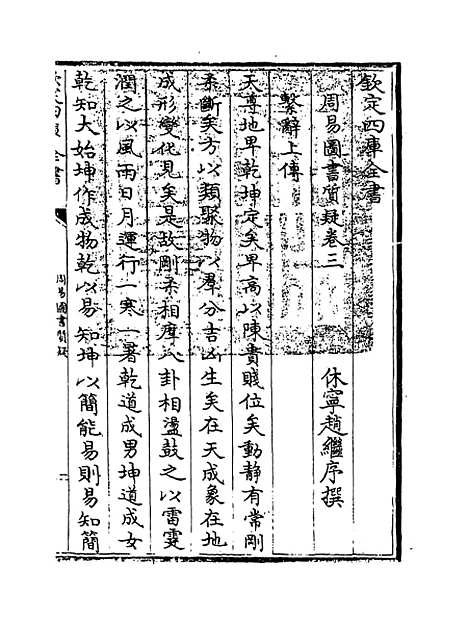 欽定四庫全書
周易圖書質疑卷三
休寧趙繼序撰
繫辭上傳
天尊地卑乾坤定矣卑高以陳貴賤位矣動靜有常剛
柔斷矣方以類聚物以羣分吉凶生矣在天成象在地
成形變化見矣是故剛柔相摩八卦相盪鼓之以雷霆
潤之以風雨日月運行一寒一暑乾道成男坤道成女
乾知大始坤作成物乾以易知坤以簡能易則易知簡
欽定四庫全書
周易圖書質疑